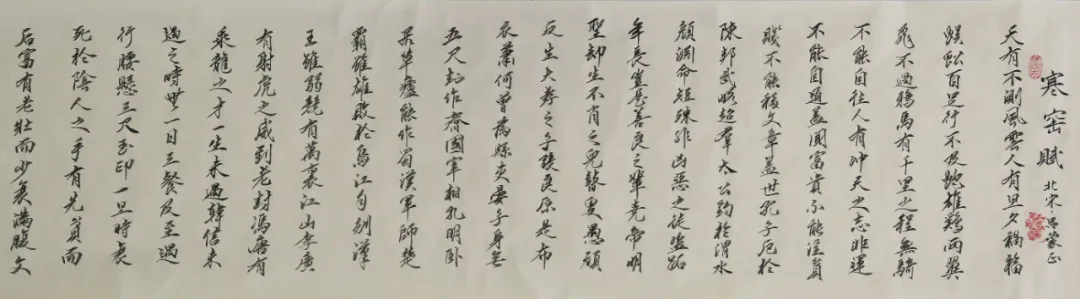 寒窑賦 北宋·吕蒙正
天有不測風雲人有旦夕禍福
蜈蚣百足行不及蛇雄鷄兩翼
飛不過鴉馬有千里之程無騎
不能自往人有冲天之志非運
不能自通盖闻富貴不能淫貧
賤不能移文章盖世孔子厄於
陳邦武略超羣太公钓於渭水
顔淵命短殊非凶惡之徒盗跖
年長豈是善良之輩尧帝明
聖却生不肖之兒瞽叟愚頑
反生大孝之子張良原是布
衣蕭何曾為縣吏晏子身無
五尺封作齊國宰相孔明卧
居草廬能作蜀漢軍師楚
霸雖雄敗於烏江自刎漢
王雖弱競有萬裏江山李廣
有射虎之威到老封馮唐有
乘龍之才一生未遇韓信未
遇之時無一日三餐及至遇
行腰懸三尺玉印一旦時衰
死於陰人之手有先貧而
后富有老壯而少衰滿腹文